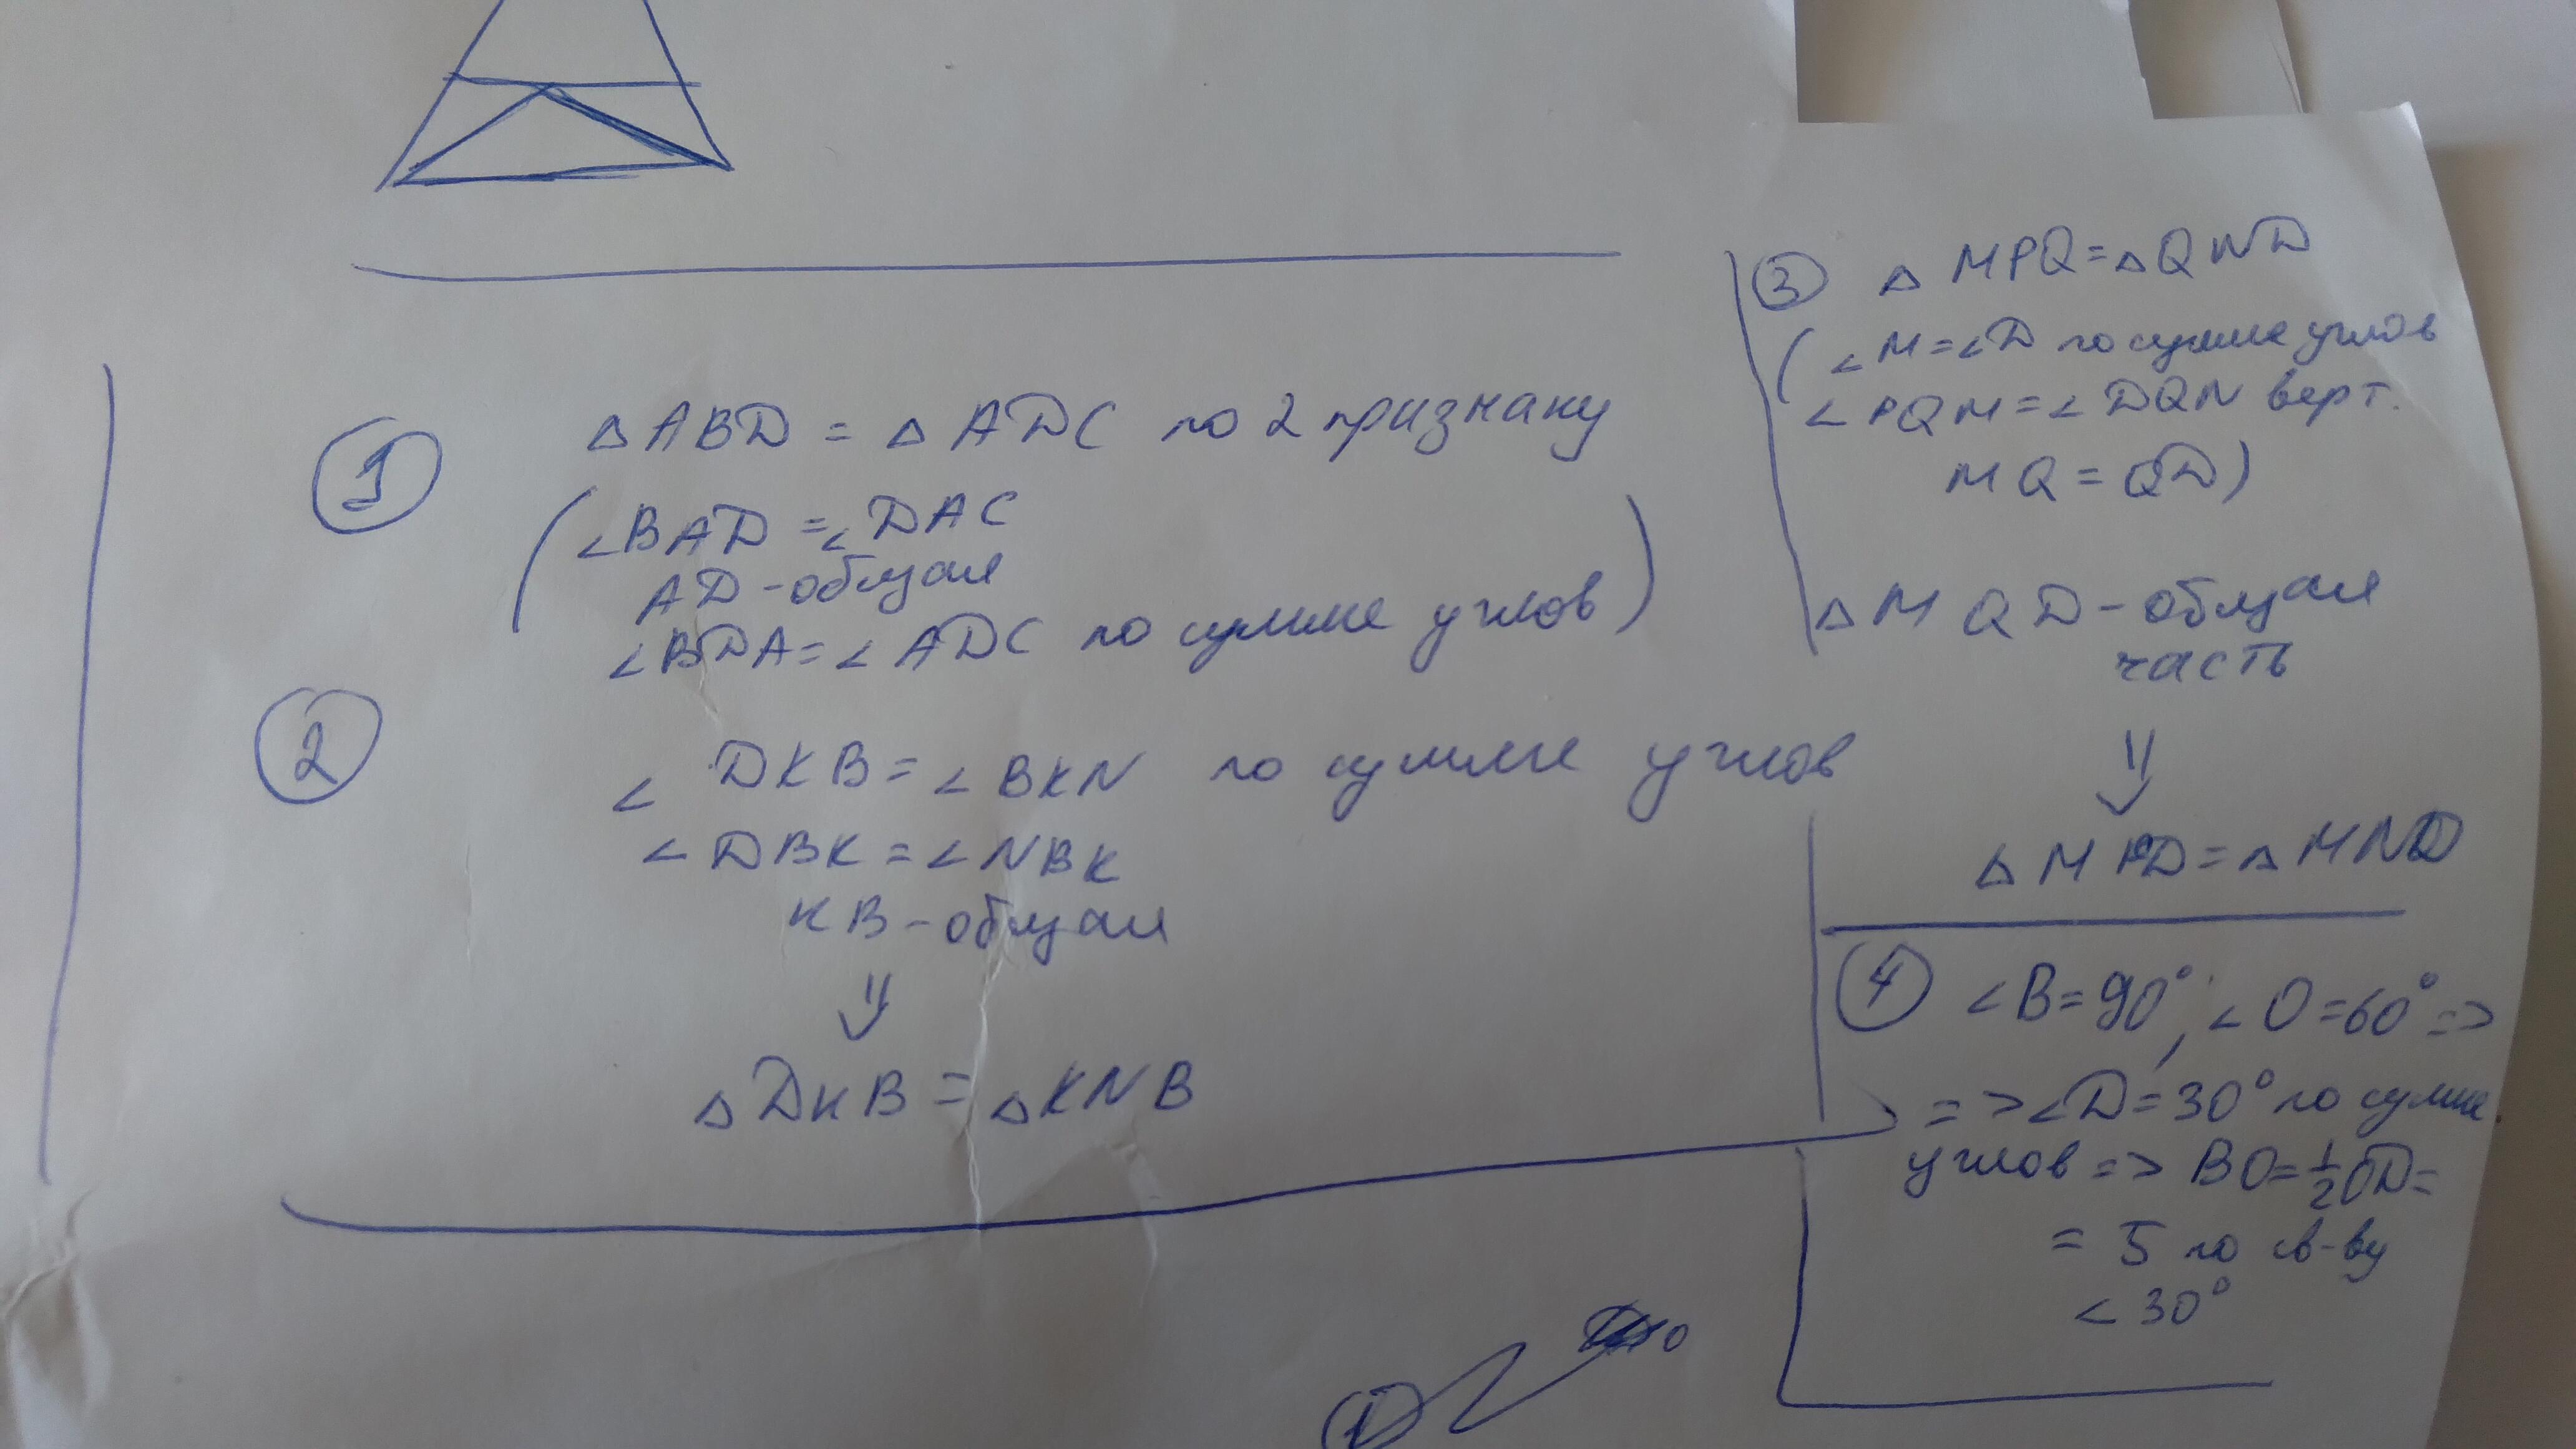 1
△ABD = △ADC по 2 признаку
(∠BAD = ∠DAC
AD - общая
∠BDA = ∠ADC по сумме углов)
2
∠DKB = ∠BKN по сумме углов
∠DBK = ∠NBK
KB - общая
⇓
△DKB = △KNB
3 △MPQ = △QND
(∠M = ∠D по сумме углов
∠PQM = ∠DQN верт.
MQ = QD)
△MQD - общая
часть
⇓
△MPD = △MND
4 ∠B = 90°, ∠O = 60° =>
=> ∠D = 30° по сумме
углов => BO = 1/2 OD =
= 5 по св-ву
∠30°
1